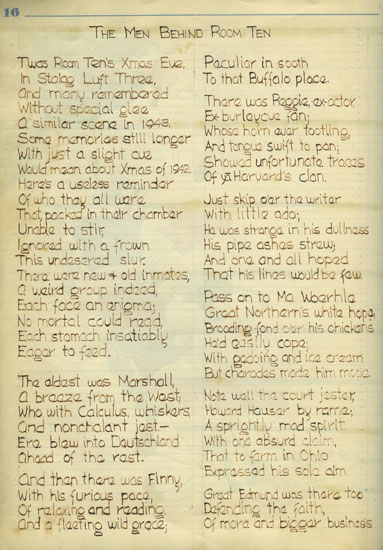 16
THE MEN BEHIND ROOM TEN
'Twas Room Ten's Xmas Eve,
In Stalag Luft Three,
And many remembered
Without special glee
A similar scene in 1943.
Some memories still longer
With just a slight cue
Would mean about Xmas of 1942.
Here's a useless reminder
Of who they all were
That packed in their chamber
Unable to stir,
Ignored with a frown
This undeserved slur.
There were new & old inmates,
A weird group indeed,
Each face an enigma;
No mortal could read,
Each stomach insatiably
Eager to feed.
The oldest was Marshall,
A breeze from the West;
Who with Calculus, whiskers
And nonchalant jest—
Ere blew into Deutschland
Ahead of the rest.
And then there was Finny,
With his furious pace,
Of relaxing and reading
And a fleeting wild grace;
Peculiar in sooth
To that Buffalo place.
There was Reggie, ex-actor
Ex-burlesque fan;
Whose horn ever tootling,
And tongue swift to pan;
Showed unfortunate traces
Of ya Harvard's clan.
Just skip o'er the writer
With little ado;
He was strange in his dullness
His pipe ashes strew;
And one and all hoped
That his lines would be few.
Pass on to Ma Woerhle
Great Northern's white hope
Brooding fond o'er his chickens
He'd easily cope;
With gadding and ice cream
But charades made him mope.
Note well the court jester,
Howard Hauser by name;
A sprightly mad spirit
With one absurd claim,
That to farm in Ohio
Expressed his sole aim.
Great Edmund was there too
Defending the faith,
Of more and bigger business